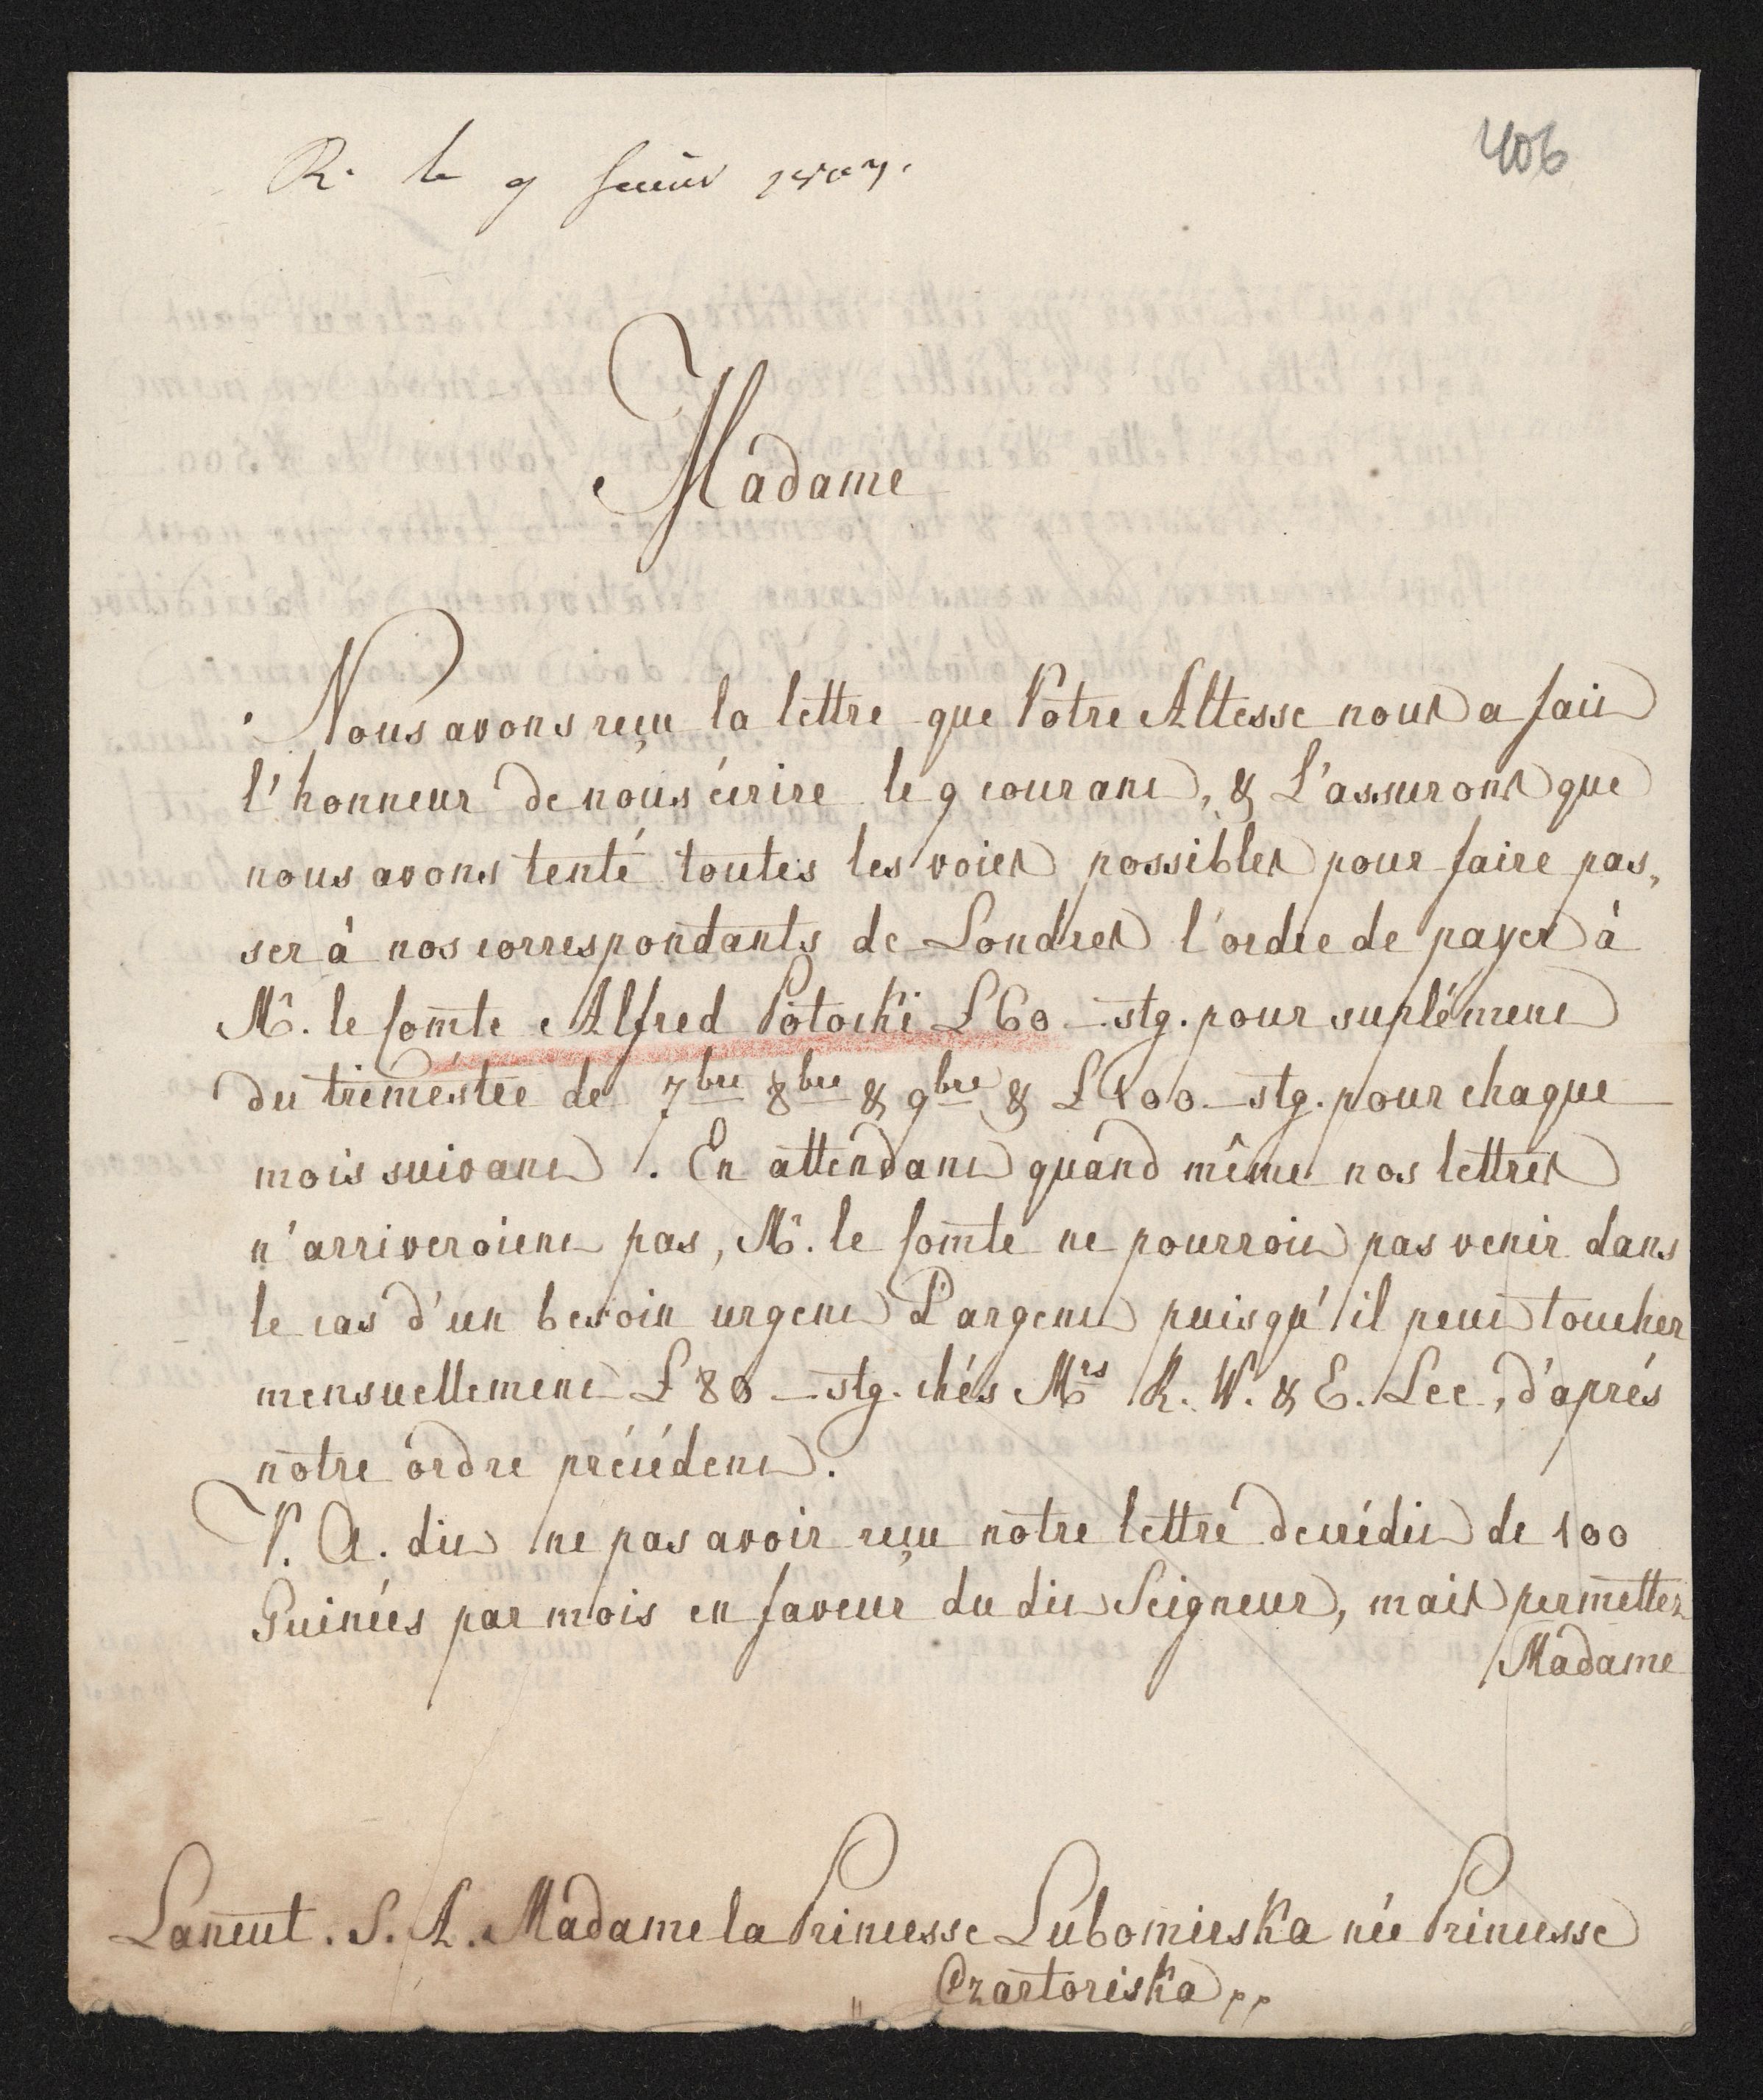 406
R. le 9
Madame
Nous avons reçu la lettre que Vôtre Altesse nous a fait
l'honneur de nous écrire le 9 courant, & L'assurons que
nous avons tenté toutes les voies possibles pour faire pas,
ser à nos correspondants de Londres l'ordre de payer à
Mr. le Comte Alfred Potocki £ 60 - stg. pour suplément
du trimestre de 7bre 8bre & 9bre & £ 100 - stg. pour chaque
mois suivant. En attendant quand même nos lettres
n'arriveroient pas, Mr. le Comte ne pourroit pas venir dans
le cas d'un besoin urgent d'argent puisqu'il peut toucher
mensuellement £ 80 - stg. chés Mrs R. W. & E. Lee, d'aprés
nôtre ordre précédent.
V. A. dit ne pas avoir reçu nôtre lettre de crédit de 100
Guinées par mois en faveur du dit Seigneur, mais permettez
Madame
Lancut. S. A. Madame la Princesse Lubomirska née Princesse
Czartoriska pp